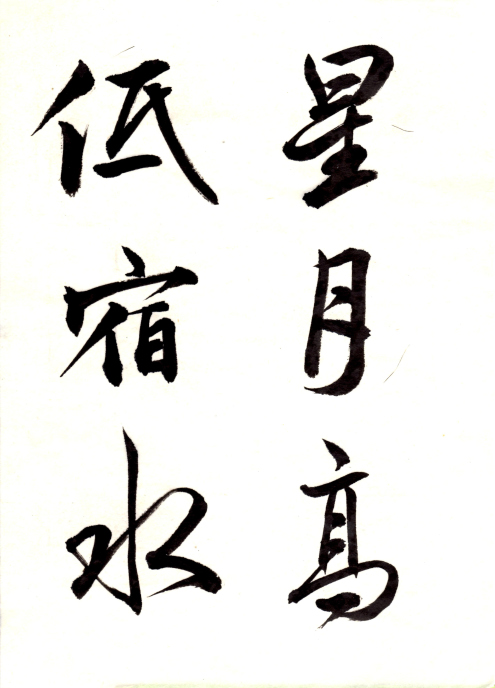 星月髙
低宿水